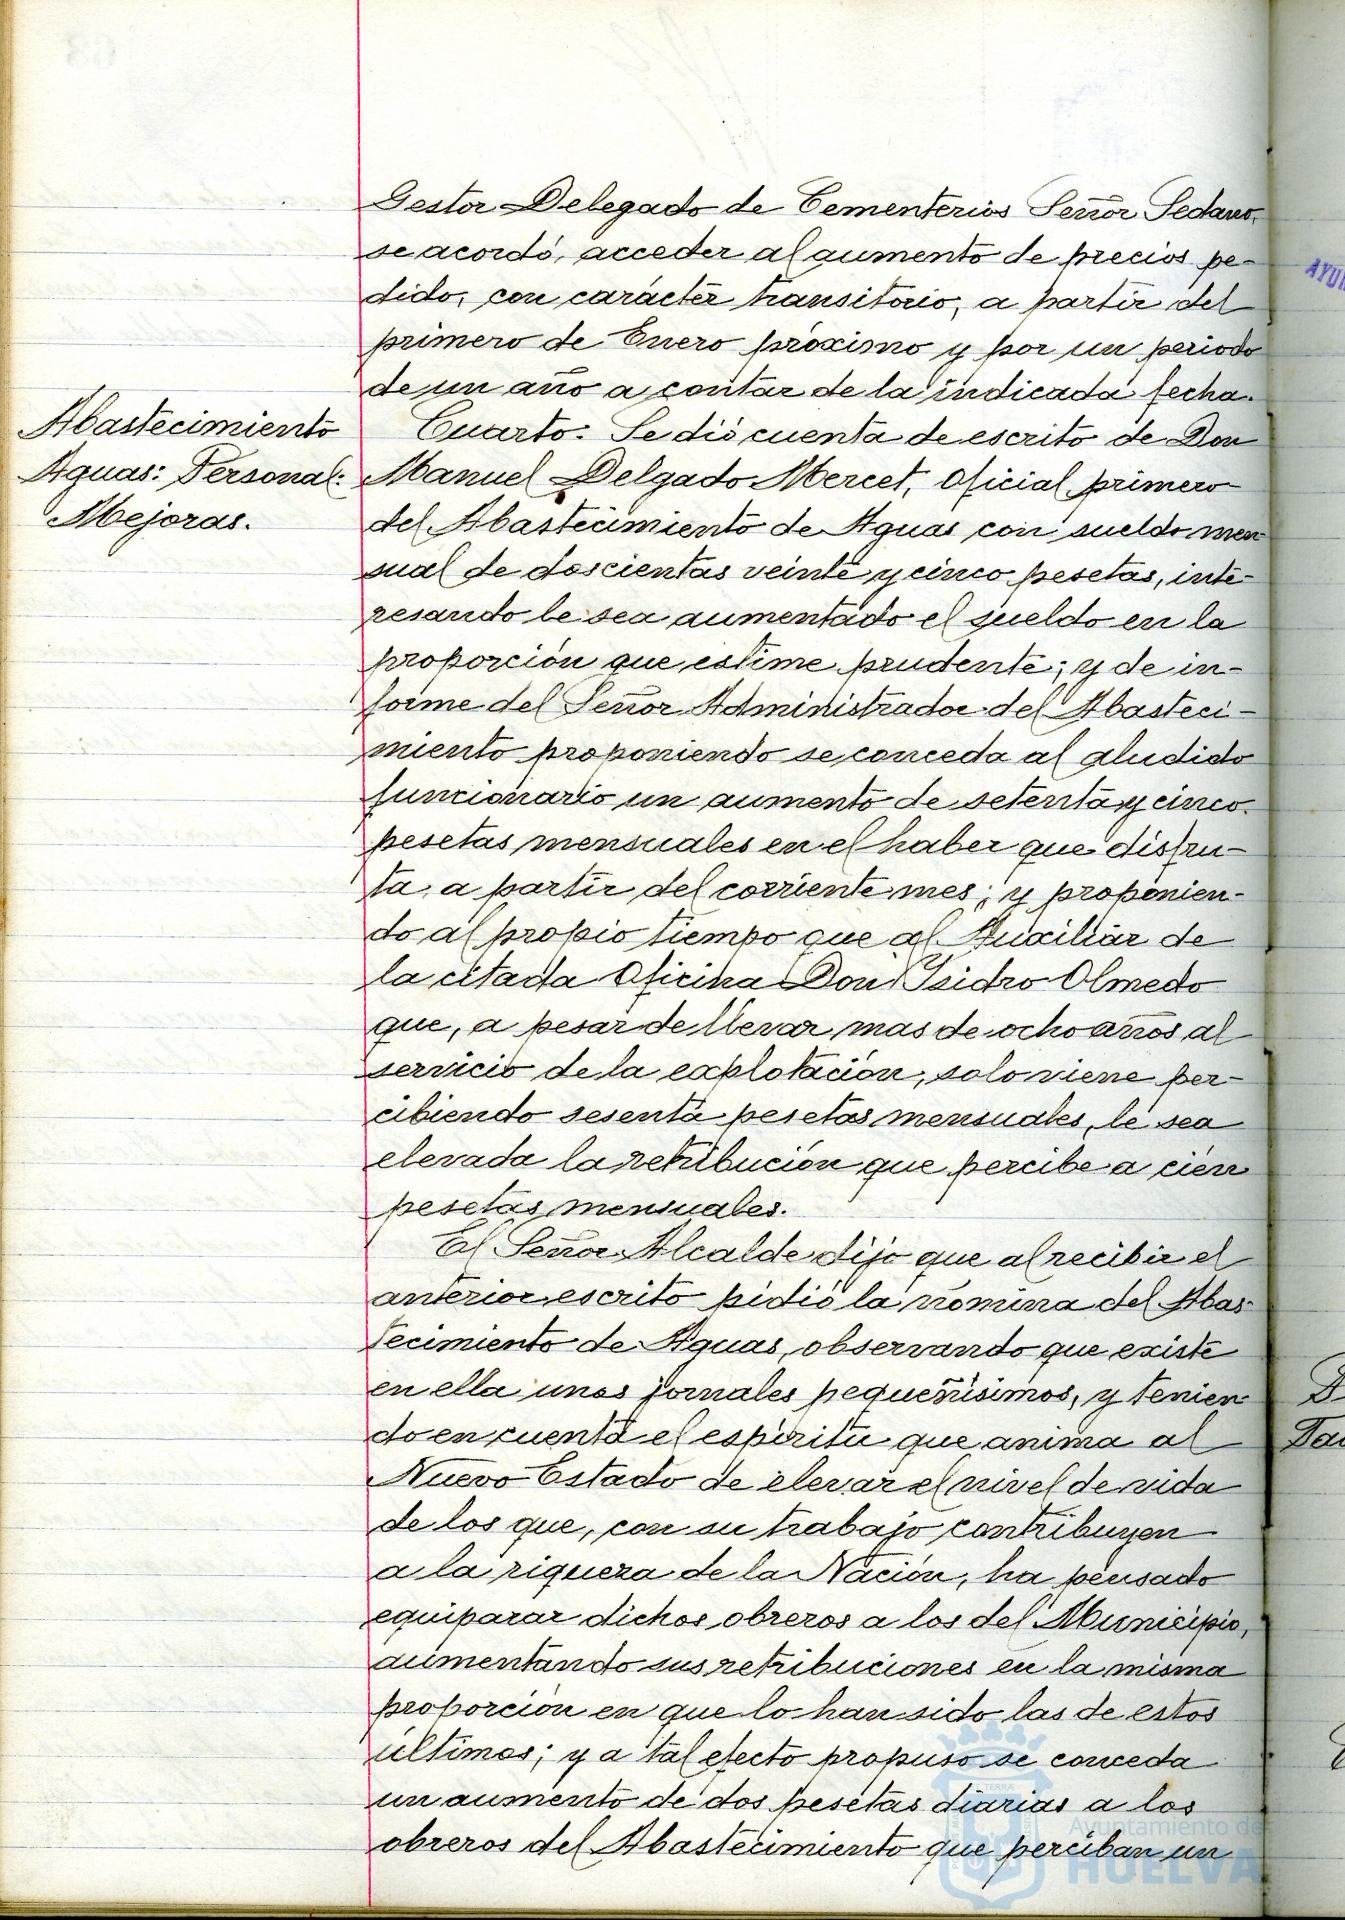 Gestor Delegado de Cementerios Señor Sedano,
se acordó, acceder al aumento de precios pe-
dido, con carácter transitorio, a partir del
primero de Enero próximo y por un periodo
de un año a contar de la indicada fecha.
Abastecimiento
Aguas: Personal:
Mejoras.
Cuarto. Se dió cuenta de escrito de Don
Manuel Delgado Mercet, Oficial primero
del Abastecimiento de Aguas con sueldo men-
sual de doscientas veinte y cinco pesetas, inte-
resando le sea aumentado el sueldo en la
proporción que estime prudente; y de in-
forme del Señor Administrador del Abasteci-
miento proponiendo se conceda al aludido
funcionario un aumento de setenta y cinco
pesetas mensuales en el haber que disfru-
ta a partir del corriente mes; y proponien-
do al propio tiempo que al Auxiliar de
la citada Oficina Don Ysidro Olmedo
que, a pesar de llevar mas de ocho años al
servicio de la explotación, solo viene per-
cibiendo sesenta pesetas mensuales, le sea
elevada la retribución que percibe a cien
pesetas mensuales.
El Señor Alcalde dijo que al recibir el
anterior escrito pidió la nómina del Abas-
tecimiento de Aguas, observando que existe
en ella unos jornales pequeñísimos, y tenien-
do en cuenta el espíritu que anima al
Nuevo Estado de elevar el nivel de vida
de los que, con su trabajo contribuyen
a la riqueza de la Nación, ha pensado
equiparar dichos obreros a los del Municipio,
aumentando sus retribuciones en la misma
proporción en que lo han sido las de estos
últimos; y a tal efecto propuso se conceda
un aumento de dos pesetas diarias a los
obreros del Abastecimiento que perciban un
Ayuntamiento de
HUELVA